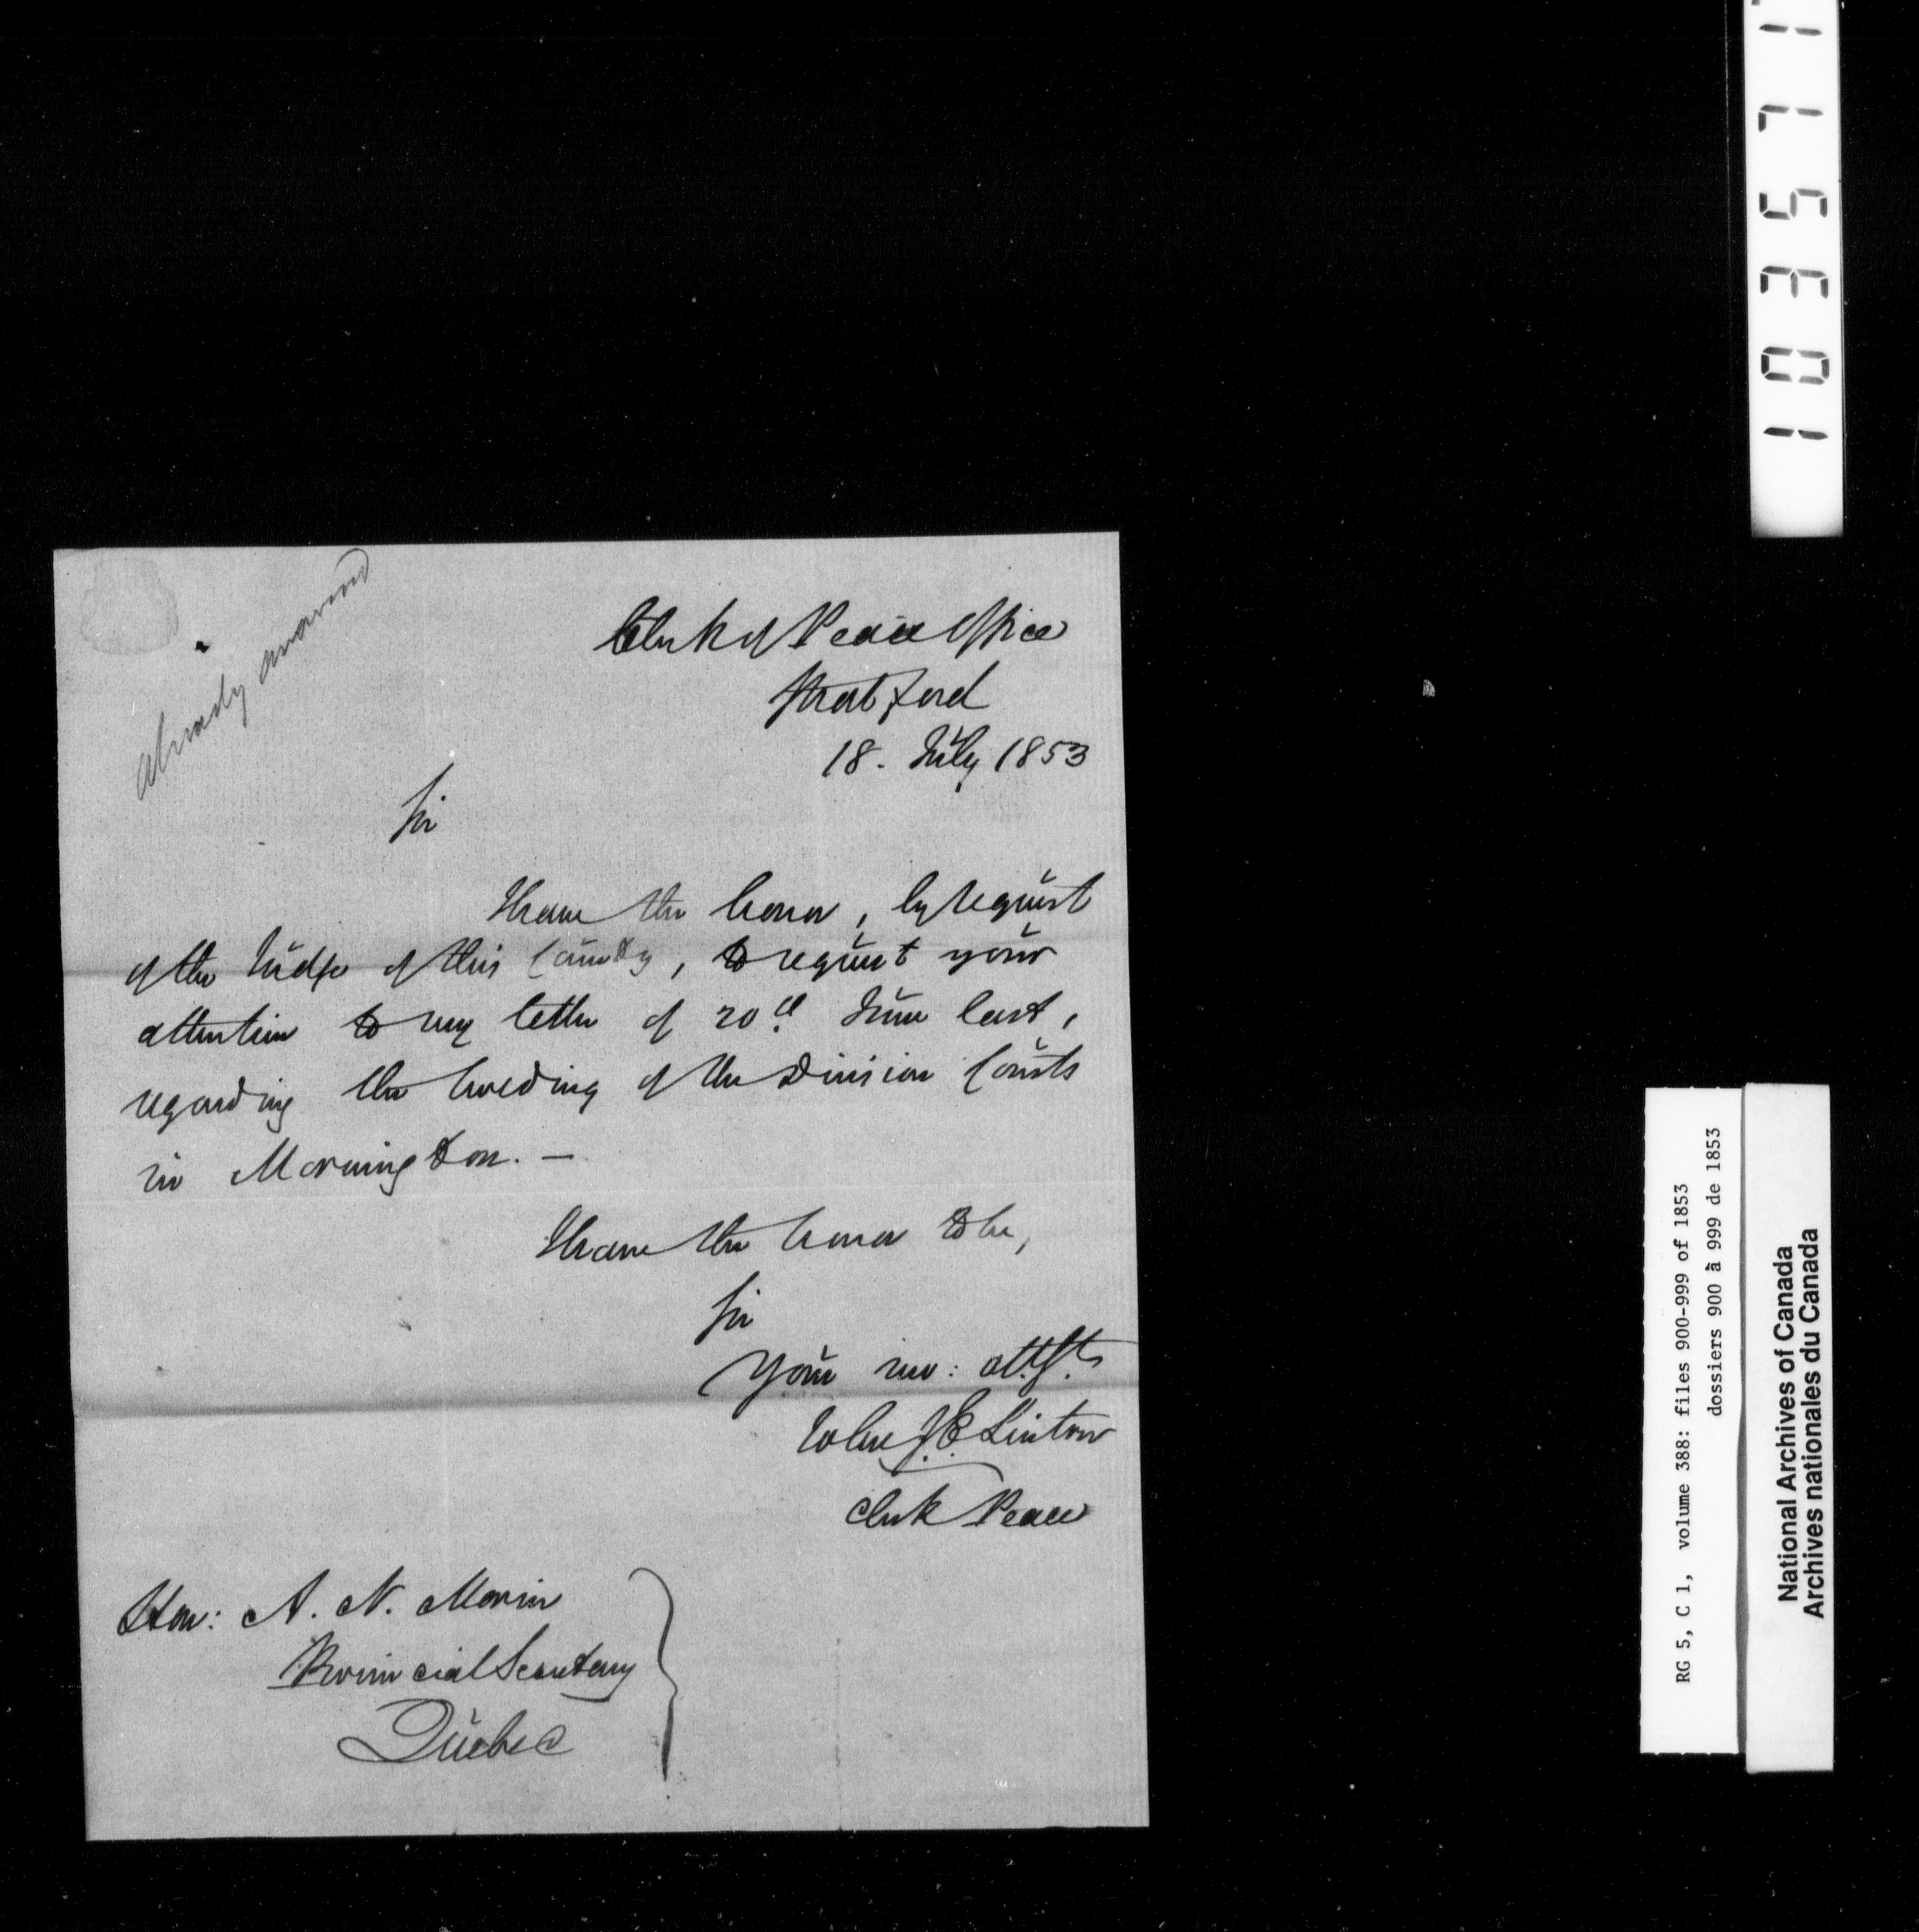 already answered
Clerk of Peace Office
Stratford
18. July 1853
Sir
I have the honor, by request
of the Judge of this County, to request your
attention to my letter of 20th June last,
regarding the holding of the Division Courts
in Mornington. —
I have the honor to be,
Sir
Your mo: obt. St.
John J. E. Linton
Clerk Peace
Hon: A. N. Morin
Provincial Secretary
Quebec
RG 5, C 1, volume 388: files 900-999 of 1853
dossiers 900 à 999 de 1853
National Archives of Canada
Archives nationales du Canada